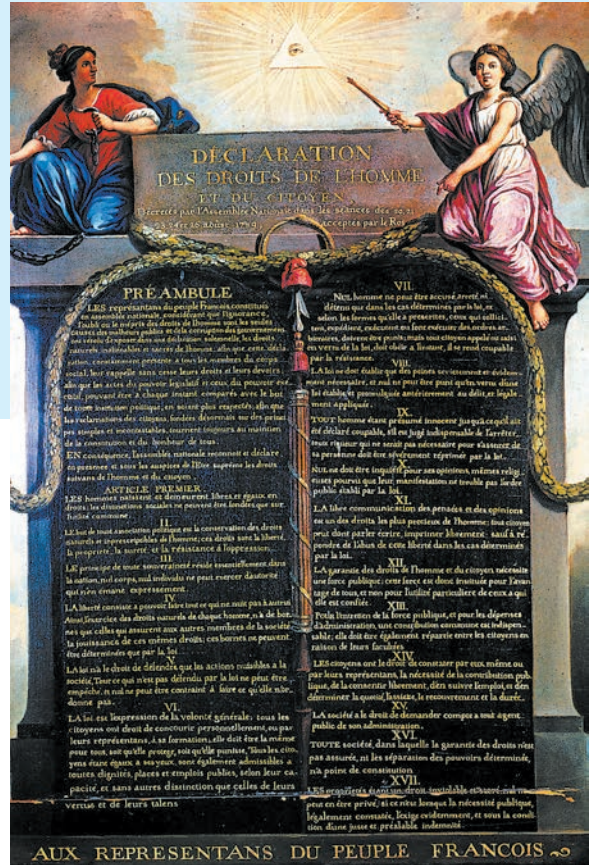 DÉCLARATION
DES DROITS DE L'HOMME
ET DU CITOYEN,
Décrétés par l'Assemblée Nationale dans les séances des 20, 21
23, 24 et 26 aoust 1789, acceptés par le Roi
PRÉAMBULE
LES représentans du peuple François, constitués
en assemblée nationale, considérant que l'ignorance,
l'oubli ou le mépris des droits de l'homme sont les seules
causes des malheurs publics et de la corruption des gouvernemens
ont résolu d'exposer dans une déclaration solemnelle, les droits
naturels, inaliénables et sacrés de l'homme; afin que cette décla-
ration, constamment présente a tous les membres du corps
social, leur rappelle sans cesse leurs droits et leurs devoirs;
afin que les actes du pouvoir législatif et ceux du pouvoir exé-
cutif, pouvant être a chaque instant comparés avec le but
de toute institution politique, en soient plus respectés; afin que
les réclamations des citoyens, fondées désormais sur des princi-
pes simples et incontestables, tournent toujours au maintien
de la constitution et du bonheur de tous.
EN conséquence, l'assemblée nationale reconnoît et déclare
en présence et sous les auspices de l'Etre suprême les droits
suivans de l'homme et du citoyen.
ARTICLE PREMIER.
LES hommes naissent et demeurent libres et égaux en
droits; les distinctions sociales ne peuvent être fondées que sur
l'utilité commune.
II.
LE but de toute association politique est la conservation des droits
naturels et imprescriptibles de l'homme; ces droits sont la liberté,
la propriété, la sureté, et la résistance à l'oppression.
III.
LE principe de toute souveraineté réside essentiellement dans
la nation, nul corps, nul individu ne peut exercer d'autorité
qui n'en émane expressement.
IV.
LA liberté consiste a pouvoir faire tout ce qui ne nuit pas à autrui
Ainsi, l'exercice des droits naturels de chaque homme, n'a de bor-
nes que celles qui assurent aux autres membres de la société
la jouissance de ces mêmes droits; ces bornes ne peuvent
être déterminées que par la loi
V.
LA loi n'a le droit de défendre que les actions nuisibles a la
société, Tout ce qui n'est pas défendu par la loi ne peut être
empêché, et nul ne peut être contraint à faire ce qu'elle n'or-
donne pas.
VI.
LA loi est l'expression de la volonté générale; tous les
citoyens ont droit de concourir personnellement, ou par
leurs représentans, à sa formation; elle doit être la même
pour tous, soit qu'elle protege, soit qu'elle punisse, Tous les cito-
yens étant égaux à ses yeux, sont également admissibles a
toutes dignités, places et emplois publics, selon leur ca-
pacité, et sans autres distinction que celles de leurs
vertus et de leurs talens
VII.
NUL homme ne peut être accusé, arreté, ni
détenu que dans les cas déterminés par la loi, et
selon les formes qu'elle a prescrites, ceux qui sollici-
tent, expédient, exécutent ou font exécuter des ordres ar-
bitraires, doivent être punis; mais tout citoyen appelé ou saisi
en vertu de la loi, doit obéir a l'instant, il se rend coupable
par la résistance.
VIII.
LA loi ne doit établir que des peines strictement et évidem-
ment nécessaire, et nul ne peut être puni qu'en vertu d'une
loi établie et promulguée antérieurement au délit, et légale-
ment appliquée.
IX.
TOUT homme étant présumé innocent jusqu'à ce qu'il ait
été déclaré coupable, s'il est jugé indispensable de l'arrêter,
toute rigueur qui ne serait pas nécessaire pour s'assurer de
sa personne doit être sévèrement réprimée par la loi.
X.
NUL ne doit être inquiété pour ses opinions, mêmes religi-
euses pourvu que leur manifestation ne trouble pas l'ordre
public établi par la loi.
XI.
LA libre communication des pensées et des opinions
est un des droits les plus précieux de l'homme; tout citoyen
peut donc parler écrire, imprimer librement: sauf à ré-
pondre de l'abus de cette liberté dans les cas déterminés
par la loi.
XII.
LA garantie des droits de l'homme et du citoyen nécessite
une force publique; cette force est donc instituée pour l'avan-
tage de tous, et non pour l'utilité particuliere de ceux a qui
elle est confiée.
XIII.
POUR l'entretien de la force publique, et pour les dépenses
d'administration, une contribution commune est indispen-
sable; elle doit être également répartie entre les citoyens en
raison de leurs facultées
XIV.
LES citoyens ont le droit de constater par eux même ou
par leurs représentans, la nécessité de la contribution pub-
lique, de la consentir librement, d'en suivre l'emploi, et d'en
déterminer la quotité, l'assiette, le recouvrement et la durée.
XV.
LA société a le droit de demander compte a tout agent
public de son administration.
XVI.
TOUTE société, dans laquelle la garantie des droits n'est
pas assurée, ni les séparation des pouvoirs déterminée,
n'a point de constitution
XVII.
LES propriétés étant un droit inviolable et sacré, nul ne
peut en être privé, si ce n'est lorsque la nécessité publique,
légalement constatée, l'exige evidemment, et sous la condi-
tion d'une juste et préalable indemnité.
AUX REPRESENTANS DU PEUPLE FRANCOIS